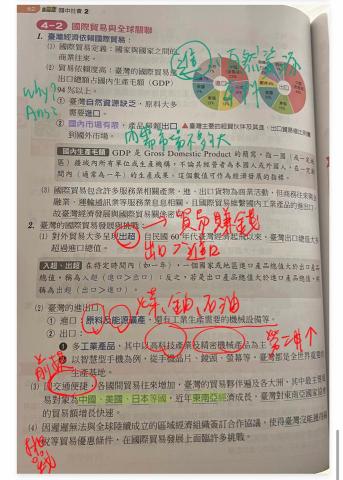 國中社會 2
4-2 國際貿易與全球關聯
1. 臺灣經濟依賴國際貿易:
(1) 國際貿易定義:國家與國家之間的
商業往來。
(2) 貿易依賴度高:臺灣的國際貿易進
出口總額占國內生產毛額(GDP)
94%以上。
① 臺灣自然資源缺乏,原料大多
需要進口。
② 國內市場有限,產品
到國外市場。
Why?
Ans:
進
天然資源
內需市場不夠大
臺灣主要的經貿伙伴及其進、出口貿易
國內生產毛額 GDP 是 Gross Domestic Product 的簡寫,指一國
區)疆域內所有單位或生產機構,不論其經營者為本國人或外國人,在一定期
間內(通常為一年)的生產成果,這個數值可作為經濟發展的指標。
(3) 國際貿易包含許多服務業相關產業,進、出口貨物為商業活動,但商務往來與金
融業、運輸通訊業等服務業息息相關,且國際貿易維繫國內工業產品的進出口,
故臺灣經濟發展與國際貿易關係密
2. 臺灣的貿易發展與挑戰:
(1) 對外貿易大多呈現出超:自民國60年代臺灣經濟起飛以來,臺灣出口總值大多
超過進口總值。
→貿易賺錢
出口>進口
入超、出超 在特定時間內(如一年),一個國家或地區進口產品總值大於出口產品
總值,稱為入超(進口>出口);反之,若是出口產品總值大於進口產品總值,則
稱為出超(出口>進口)。
(2) 臺灣的進出口:
煤、鈾、石油
① 進口:原料及能源礦產,還有工業生產需要的機械設備等。
② 出口:
❶ 多工業產品,其中以高科技產業及精密機械產品為主
❷ 以智慧型手機為例,從手機晶片、鏡頭、螢幕等,臺灣都是全世界重要的
生產基地。
(3) 因交通便捷,各國間貿易往來增加,臺灣的貿易夥伴遍及各大洲,其中最主要貿
易對象為中國、美國、日本等國,近年東南亞經濟成長,臺灣對東南亞國家協會
的貿易額增長快速。
(4) 因遲遲無法與全球陸續成立的區域經濟組織簽訂合作協議,使得臺灣沒能獲得減
稅等貿易優惠條件,在國際貿易發展上面臨許多挑戰。